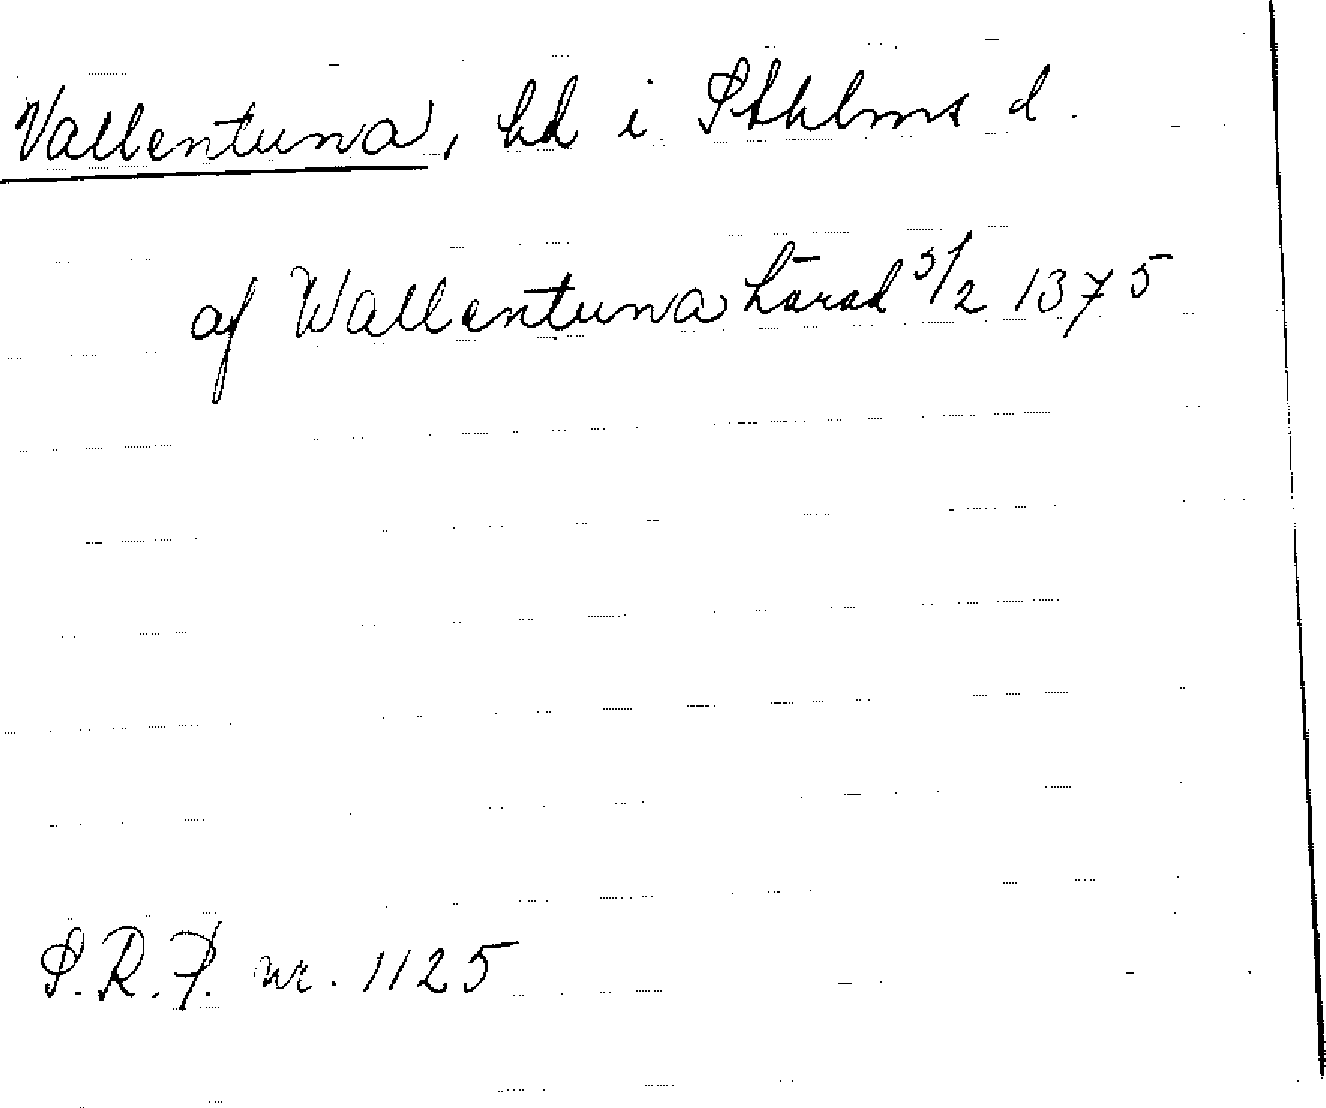 Vallentuna, hd i Sthlms l.
af Wallentuna härad 5/2 1375
S.R.P. nr. 1125